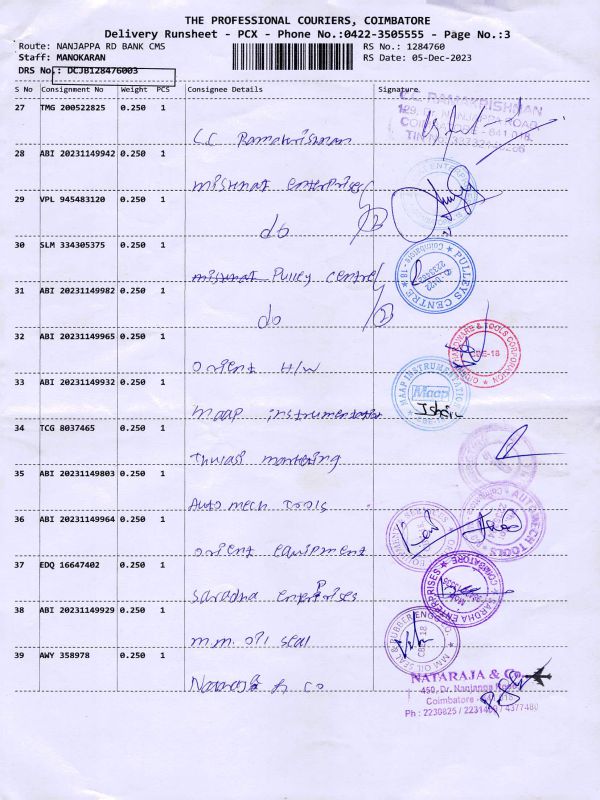 THE PROFESSIONAL COURIERS, COIMBATORE
Delivery Runsheet - PCX - Phone No.:0422-3505555 - Page No.:3
Route: NANJAPPA RD BANK CMS RS No.: 1284760
Staff: MANOKARAN RS Date: 05-Dec-2023
DRS No.: DCJB128476003
S No Consignment No Weight PCS Consignee Details Signature
27 TMG 200522825 0.250 1
C.C RAMAKRISHNAN
129, DR. NANJAPPA ROAD
C.C Ramakrishnan
28 ABI 20231149942 0.250 1
mishnat enterprises
29 VPL 945483120 0.250 1
do 2
30 SLM 334305375 0.250 1
PULLEYS CENTRE Coimbatore - 18
mishnat Pulley centre
31 ABI 20231149982 0.250 1
do 2
32 ABI 20231149965 0.250 1
HARDWARE & TOOLS CORPORATION CBE-18
orient H/W
33 ABI 20231149932 0.250 1
MAAP INSTRUMENTATION Maap
maap instrumentation
34 TCG 8037465 0.250 1
Thulasi
35 ABI 20231149803 0.250 1
AUTO MECH TOOLS
Auto mech Tools
36 ABI 20231149964 0.250 1
orient equipment
37 EDQ 16647402 0.250 1
SARDHA ENTERPRISES COIMBATORE
Saradha enterprises
38 ABI 20231149929 0.250 1
MM OIL SEAL & RUBBER ENGG CBE - 18
m.m. oil seal
39 AWY 358978 0.250 1
NATARAJA & Co
450, Dr. Nanjappa Road
Coimbatore
Ph : 2230825 / 2231400 / 4377480
Nataraja & co